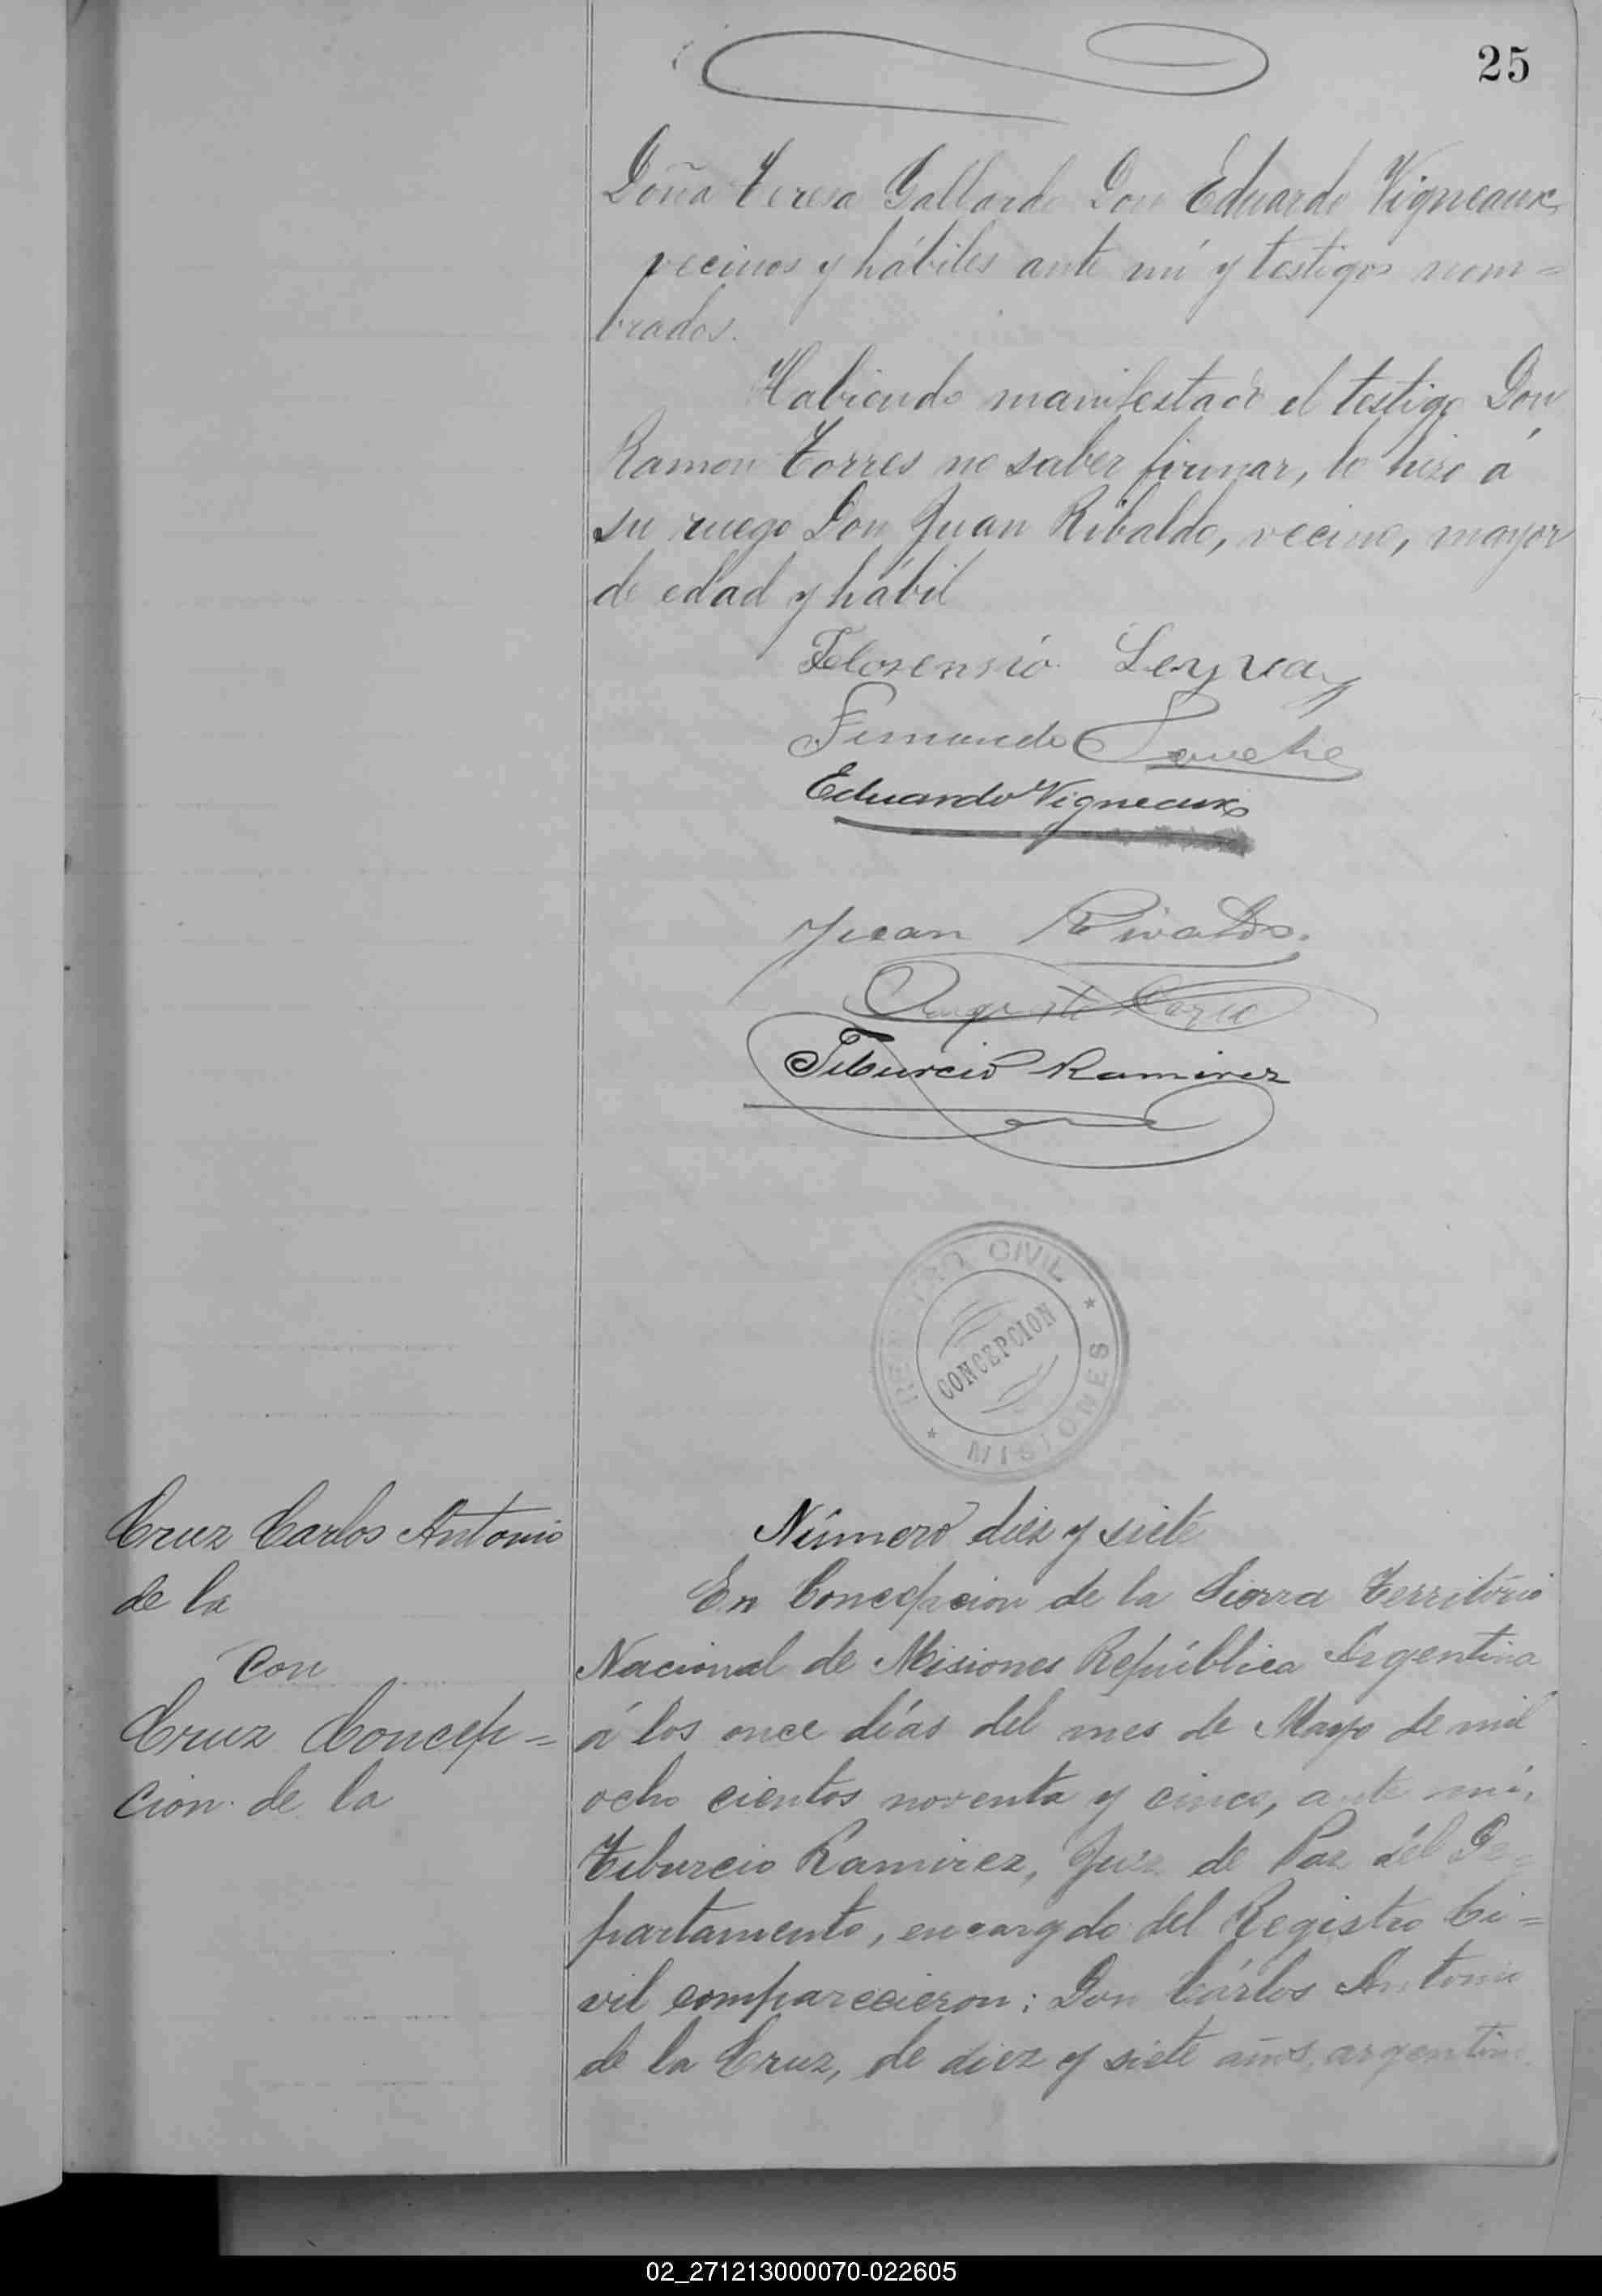 25
Doña Teresa Gallardo Don Eduardo Vigneaux
vecinos y hábiles ante mí y testigos nom=
brados.
Habiendo manifestado el testigo Don
Ramon Torres no saber firmar, lo hizo á
su ruego Don Juan Ribaldo, vecino, mayor
de edad y hábil
Florensio Leyva
Fernando
Eduardo Vigneaux
Juan Rivaldo.
Augusto
Tiburcio Ramirez
REGISTRO CIVIL
CONCEPCION
* MISIONES *
Cruz Carlos Antonio
de la
con
Cruz Concep=
cion de la
Número diez y siete
En Concepcion de la Sierra Territorio
Nacional de Misiones República Argentina
á los once días del mes de Mayo de mil
ocho cientos noventa y cinco, ante mí,
Tiburcio Ramirez, Juez de Paz del De=
partamento, encargdo del Registro Ci=
vil comparecieron: Don Cárlos Antonio
de la Cruz, de diez y siete años, argentino
02_271213000070-022605